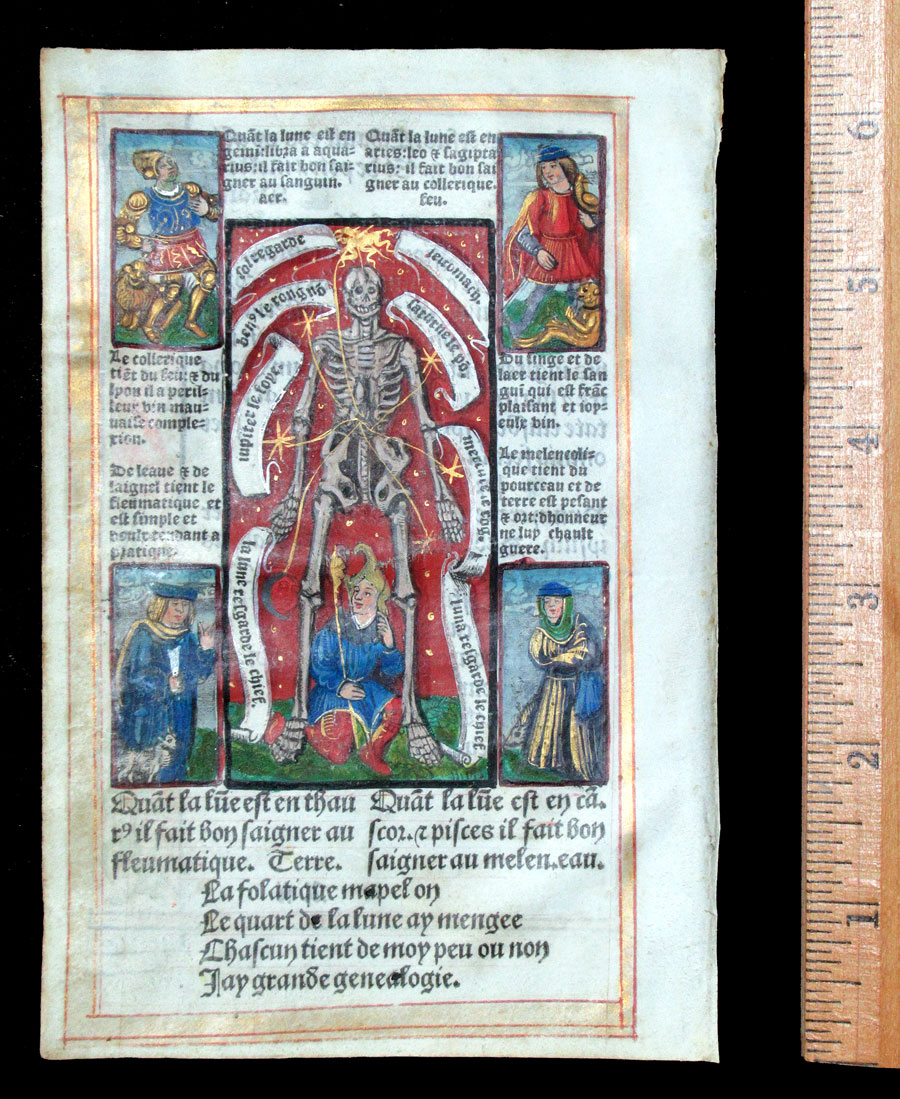 Quãt la lune est en
gemi:libra a aqua-
rius:il fait bon sai-
gner au sanguin.
aer.
Quãt la lune est en
aries:leo & sagipta
rius: il fait bon sai
gner au collerique.
feu.
sol regarde
lestomach.
le poulmõ
jupiter le foye.
mercure
la lune resgarde le chief.
luna resgarde le chief
Le collerique
tiẽt du feu: & du
lyon il a peril-
leux vin mau-
uaise comple-
xion.
De leaue & de
laignel tient le
fleumatique et
est simple et
doulx tendant a
pratique.
Du singe et de
laer tient le san
gui qui est frãc
plaisant et ioy-
eulx vin.
Le melencoli-
que tient du
pourceau et de
terre est pesant
&
ne luy chault
guere.
Quãt la lũe est en thau
rꝰ il fait bon saigner au
fleumatique. Terre.
Quãt la lũe est en cã.
scor. & pisces il fait bon
saigner au melen.eau.
La folatique mapel on
Le quart de la lune ay mengee
Chascun tient de moy peu ou non
Jay grande genealogie.
6
5
4
3
2
1